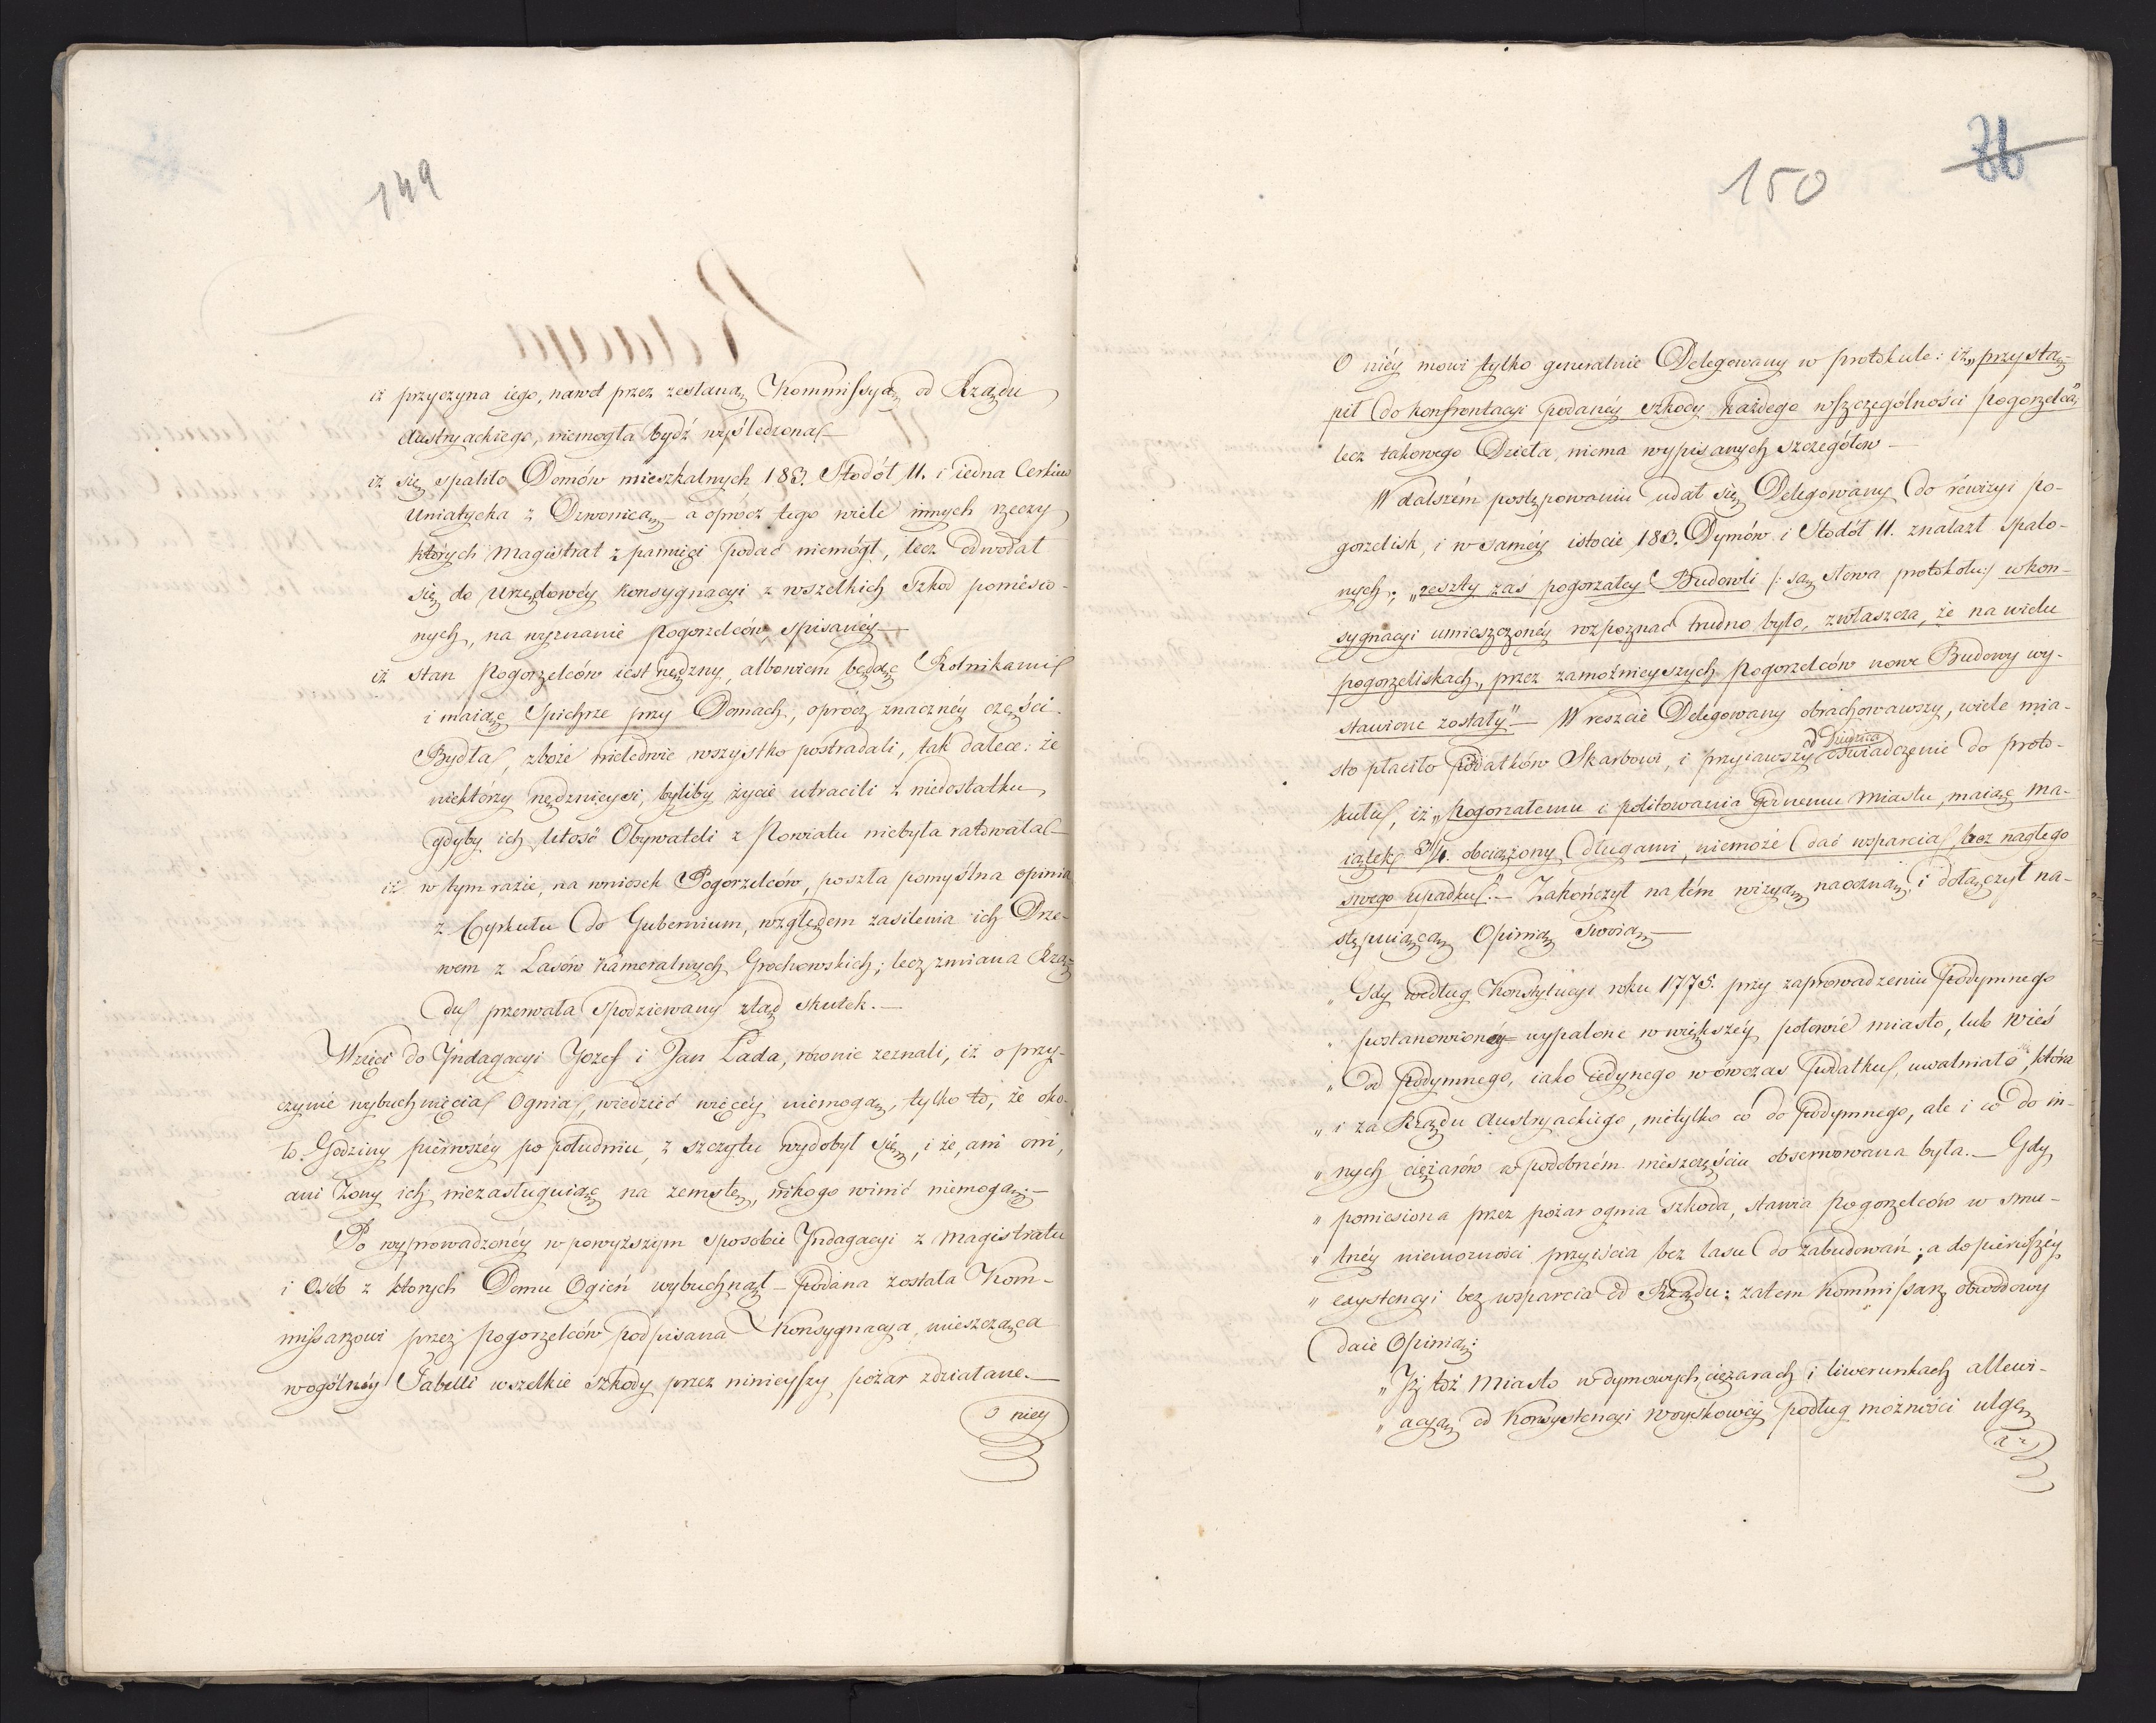 149
iż przyczyna iego, nawet przez zesłaną Kommissyą od Rządu
Austryackiego, niemogła bydź wyśledzona —
iż się spaliło Domów mieszkalnych 183. Stodół 11. i iedna Cerkiew
Uniatycka z Dzwonicą — a oprócz tego wiele innych rzeczy
których Magistrat z pamięci podać niemógł, lecz odwołał
się do Urzędowéy Konsygnacyi z wszelkich Szkod poniesio-
nych, na wyznanie Pogorzelców spisanéy —
iż stan Pogorzelców iest nędzny, albowiem będąc Rolnikami
i maiąc Spichrze przy Domach, oprócz znacznéy części
Bydła, zboże nieledwie wszystko postradali, tak dalece: że
niektórzy nędznieysi, byliby życie utracili z niedostatku
gdyby ich litość Obywateli z Powiatu niebyła ratowała —
iż w tym razie, na wniosek Pogorzelców, poszła pomyślna opinia
z Cyrkułu do Gubernium, względem zasilenia ich Drze-
wem z Lasów Kameralnych Grochowskich; lecz zmiana Rzą-
du przerwała Spodziewany ztąd skutek. —
Wzięci do Yndagacyi Jozef i Jan Łada, równie zeznali, iż o przy-
czynie wybuchnięcia Ognia, wiedzieć więcéy niemogą, tylko to, że oko-
ło Godziny pierwszéy po południu, z szczytu wydobył się, i że, ani oni,
ani Żony ich niezasługuiąc na zemstę, nikogo winić niemogą. —
Po wyprowadzonéy w powyższym sposobie Yndagacyi z Magistratu
i Osób z których Domu Ogień wybuchnął — podana została Kom-
missarzowi przez pogorzelców podpisana Konsygnacya, mieszcząca
wogólnéy Tabelli wszelkie szkody przez ninieyszy pożar zdziałane. —
O niey
150
O niéy mowi tylko generalnie Delegowany w protokule: iż „przystą-
pił do konfrontacyi podanéy szkody każdego wszczególności pogorzelca"
lecz takowego Dzieła, niema wypisanych szczegółów —
W dalszém postępowaniu udał się Delegowany do rewizyi po-
gorzelisk, i w saméy istocie 183. Dymów i Stodół 11. znalazł spalo-
nych; „reszty zas pogorzałey Budowli /: są słowa protokołu:/ wkon-
sygnacyi umieszczonéy rozpoznać trudno było, zwłaszcza, że na wielu
pogorzeliskach, przez zamożnieyszych Pogorzelców nowe Budowy wy-
stawione zostały" — Wreszcie Delegowany obrachowawszy, wiele mia-
sto płaciło podatków Skarbowi, i przyiąwszy od Dziedzica oświadczenie do proto-
kułu, iż „Pogorzałemu i politowania godnemu Miastu, maiąc ma-
iątek 3/4. obciążony długami, niemoże dać wsparcia, bez nagłego
swego upadku". — Zakończył na tém wizyą naoczną, i dołączył na-
stępuiącą Opinią Swoią —
„ Gdy według Konstytucyi roku 1775. przy zaprowadzeniu Podymnego
„ postanowionéy wypalone w większéy połowie miasto, lub Wieś
„ Od Podymnego, iako iedynego wówczas Podatku, uwalniało, która
„ i za Rządu Austryackiego, nietylko co do podymnego, ale i co do in-
„ nych ciężarów w podobném nieszczęściu obserwowana była. — Gdy
„ poniesiona przez pożar ognia szkoda, stawia Pogorzelców w smu-
„ tnéy niemożności przyiścia bez lasu do zabudowań; a do pierwszéy
„ exystencyi bez wsparcia od Rządu: zatem Kommissarz obwodowy
daie Opinią:
„ Jż toż Miasto w dymowych ciężarach i liwerunkach allewi-
„ acyą od Konsystencyi Woyskowéy podług możności ulgę